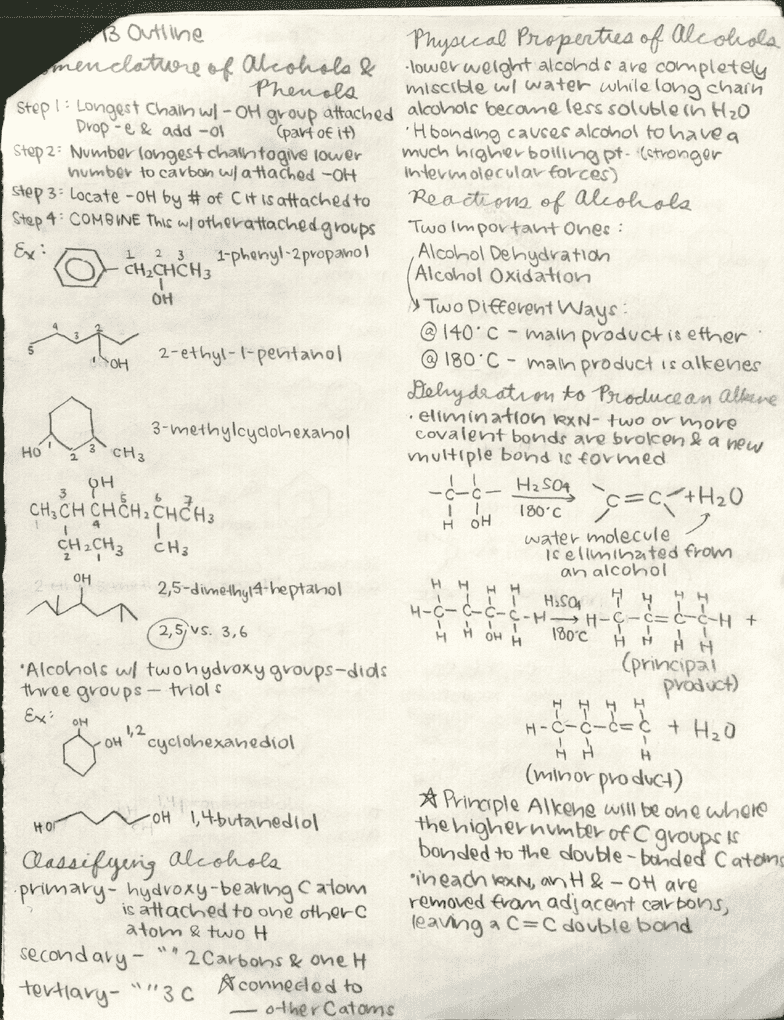 13 Outline
Nomenclature of Alcohols &
Phenols
Step 1: Longest Chain w/ -OH group attached
Drop -e & add -ol (part of it)
Step 2: Number longest chain to give lower
number to carbon w/ attached -OH
Step 3: Locate -OH by # of C it is attached to
Step 4: COMBINE This w/ other attached groups
Ex: 1 2 3 1-phenyl-2propanol
CH₂CHCH₃
OH
5 4 3 2 1 OH 2-ethyl-1-pentanol
3-methylcyclohexanol
HO 1 2 3 CH₃
3 OH 5 6 7
CH₃CHCHCH₂CHCH₃
1 4
CH₂CH₃ CH₃
2 1
OH 2,5-dimethyl4-heptanol
2,5 vs. 3,6
·Alcohols w/ two hydroxy groups-diols
three groups - triols
Ex: OH
OH 1,2 cyclohexanediol
HO OH 1,4-butanediol
Classifying Alcohols
·primary- hydroxy-bearing C atom
is attached to one other C
atom & two H
secondary- " " 2 Carbons & one H
tertiary- " " 3 C ☆connected to
— other C atoms
Physical Properties of Alcohols
·lower weight alcohols are completely
miscible w/ water while long chain
alcohols become less soluble in H₂O
·H bonding causes alcohol to have a
much higher boiling pt. (stronger
intermolecular forces)
Reactions of Alcohols
Two Important Ones:
Alcohol Dehydration
Alcohol Oxidation
Two Different Ways:
@ 140°C - main product is ether
@ 180°C - main product is alkenes
Dehydration to Produce an Alkene
·elimination RXN- two or more
covalent bonds are broken & a new
multiple bond is formed
-C-C- H₂SO₄ C=C +H₂O
H OH 180°C
water molecule
is eliminated from
an alcohol
H H H H H₂SO₄ H H H H
H-C-C-C-C-H → H-C-C=C-C-H +
H H OH H 180°C H H H H
(principal
product)
H H H H
H-C-C-C=C + H₂O
H H H
(minor product)
☆ Principle Alkene will be one where
the higher number of C groups is
bonded to the double-bonded C atoms
·in each RXN, an H & -OH are
removed from adjacent carbons,
leaving a C=C double bond